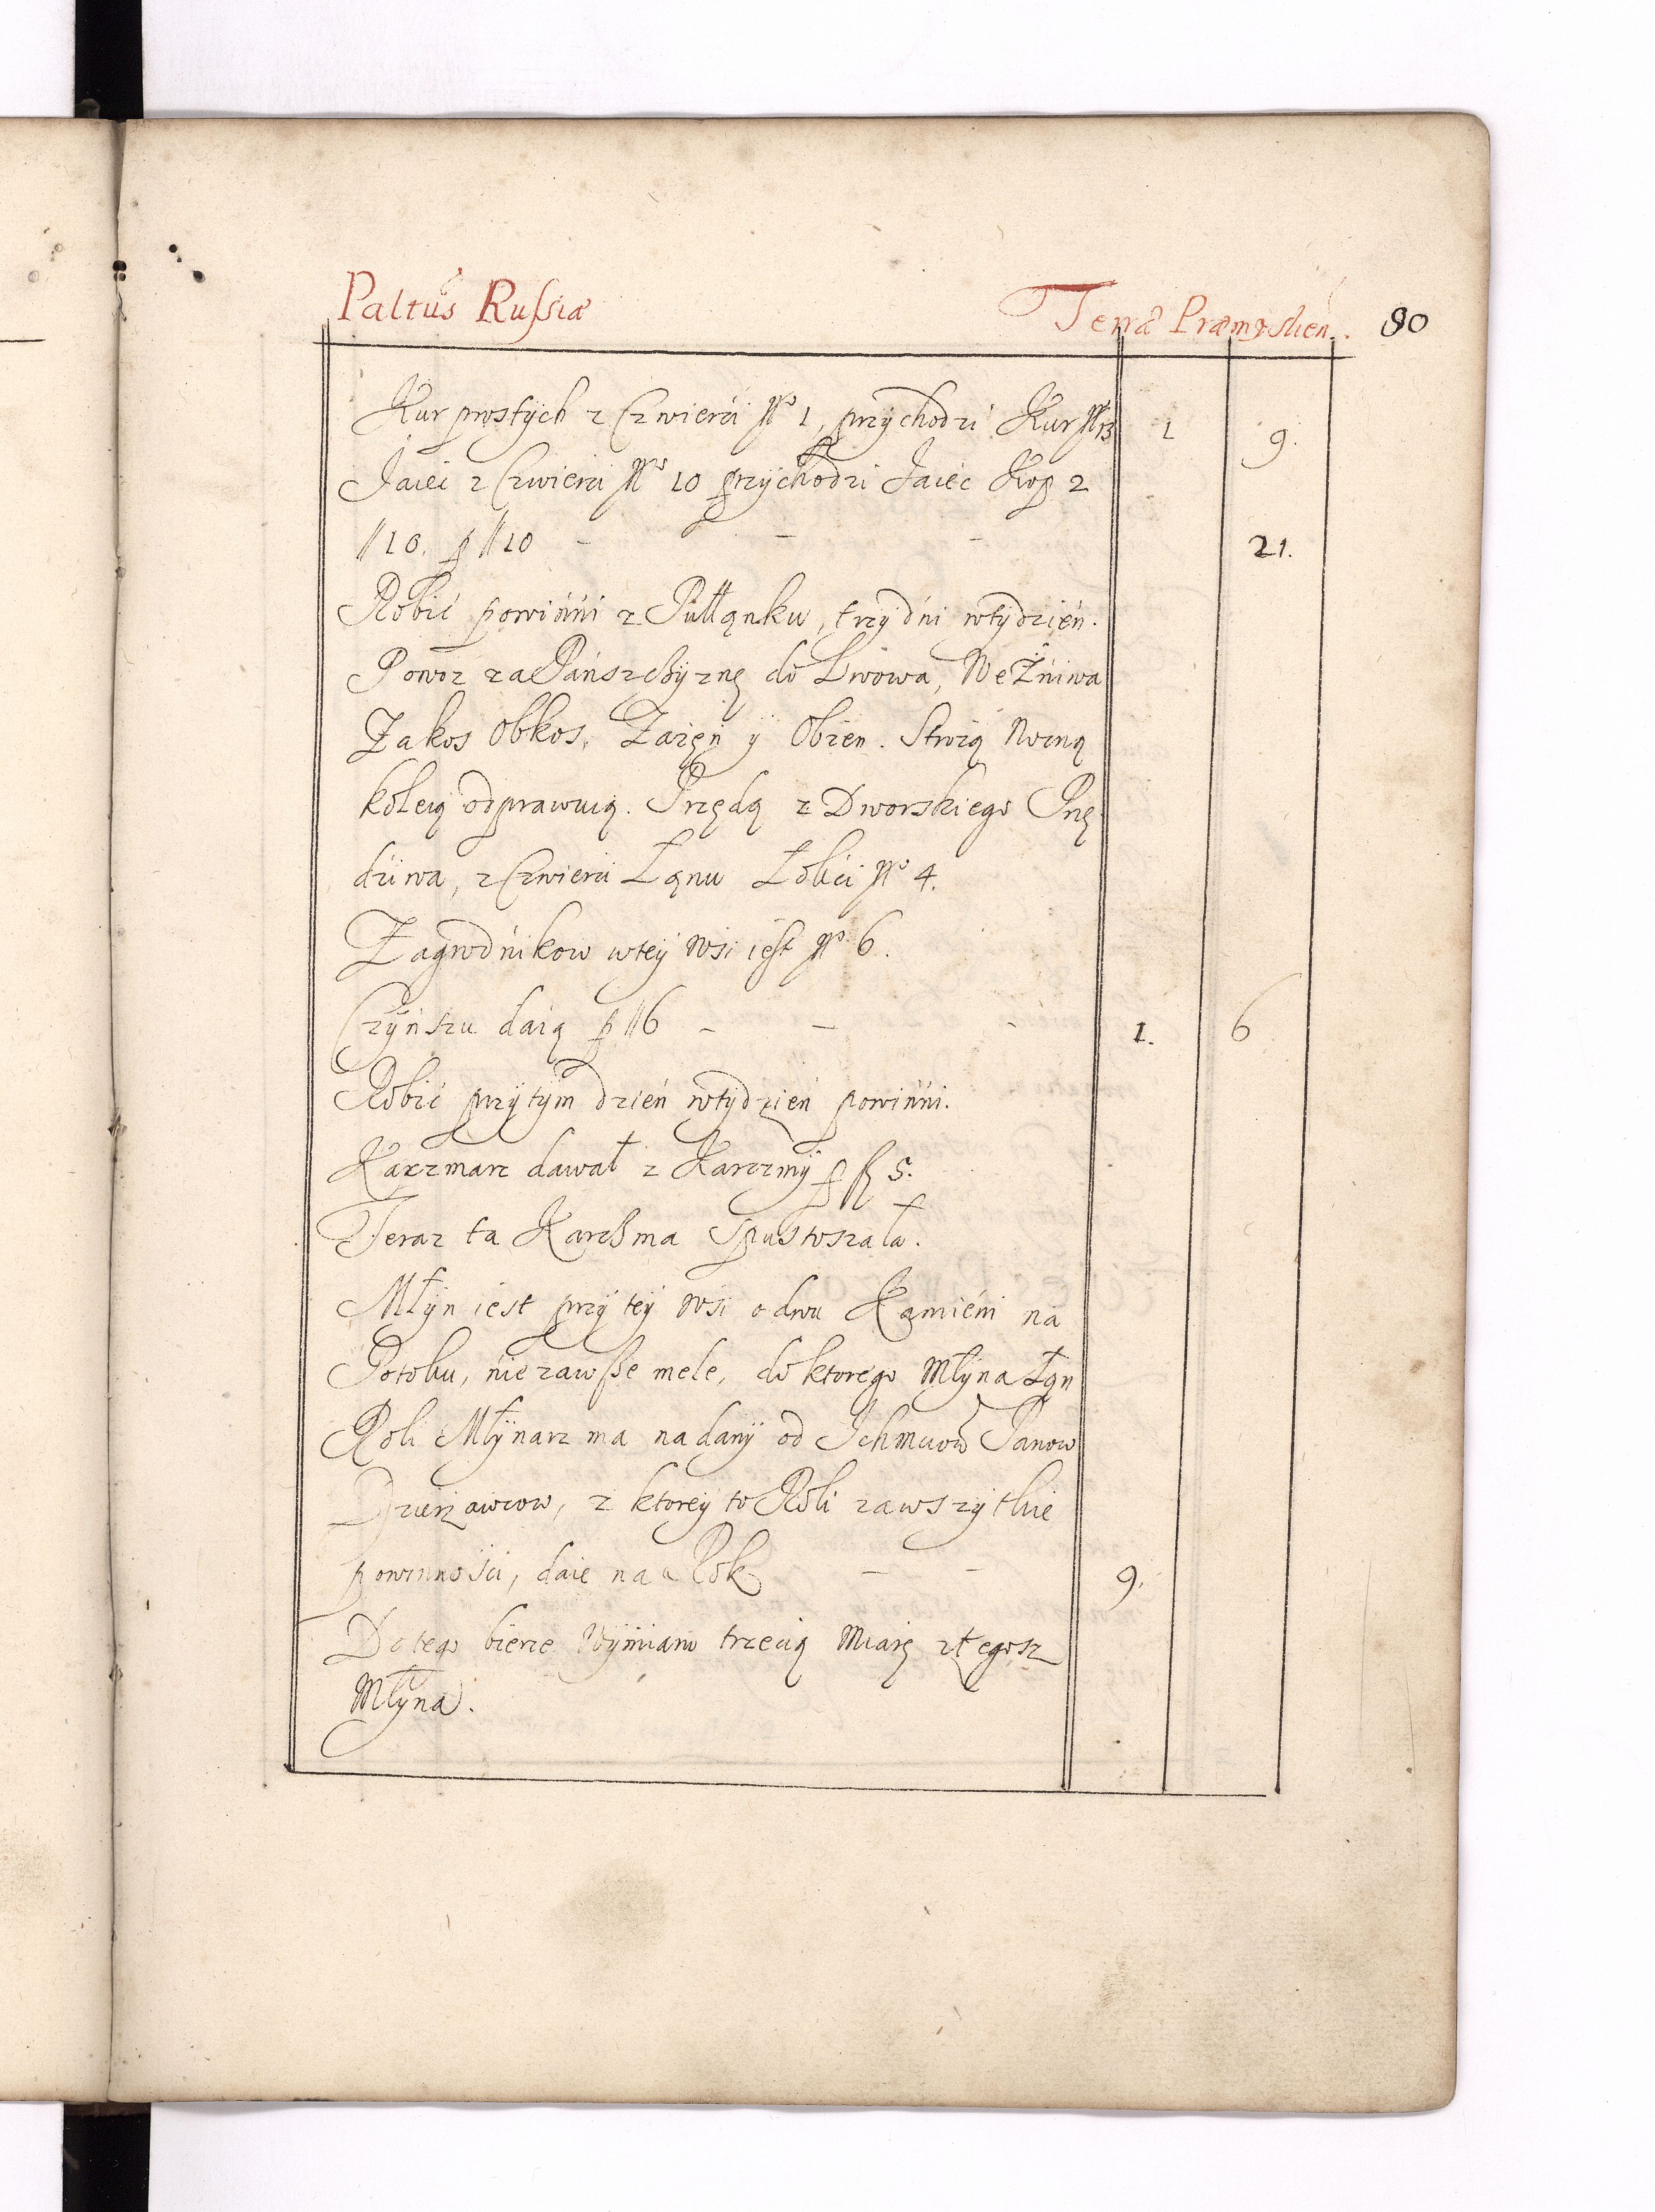 Paltus Russiæ Terræ Præmysłien. 80
Kur prostych z Czwierci No 1, przychodzi Kur No 13 1 9.
Jaiec z Czwierci No 10 przychodzi Jaiec Kop 2
// 10. p // 10 - - - 21.
Robić powinni z Pułłanku, trzy dni w tydzień.
Powoz za Pańszchyznę do Lwowa, We Żniwa
Zakos Obkos, Zażęn y Obżen. Stróżą Nocną
koleią odprawuią. Przędą z Dworskiego Przę
dziwa, z Czwierci Łanu Łokci No 4.
Zagrodnikow w tey wsi iest No 6.
Czynszu daią p // 6 - - - 1. 6
Robić przytym dzień w tydzień powinni.
Karzmarz dawał z Karczmy p fl 5.
Teraz ta Karczma Spustoszała.
Młyn iest przy tey wsi o dwu Kamieni na
Potoku, nie zawsze mele, do ktorego Młyna Łan
Roli Młynarz ma nadany od Ichmciow Panow
Dzierżawcow, z ktorey to Roli za wszytkie
powinności, daie na Rok - - 9.
Do tego bierze Wymiaru trzecią Miarę z tegosz
Młyna.